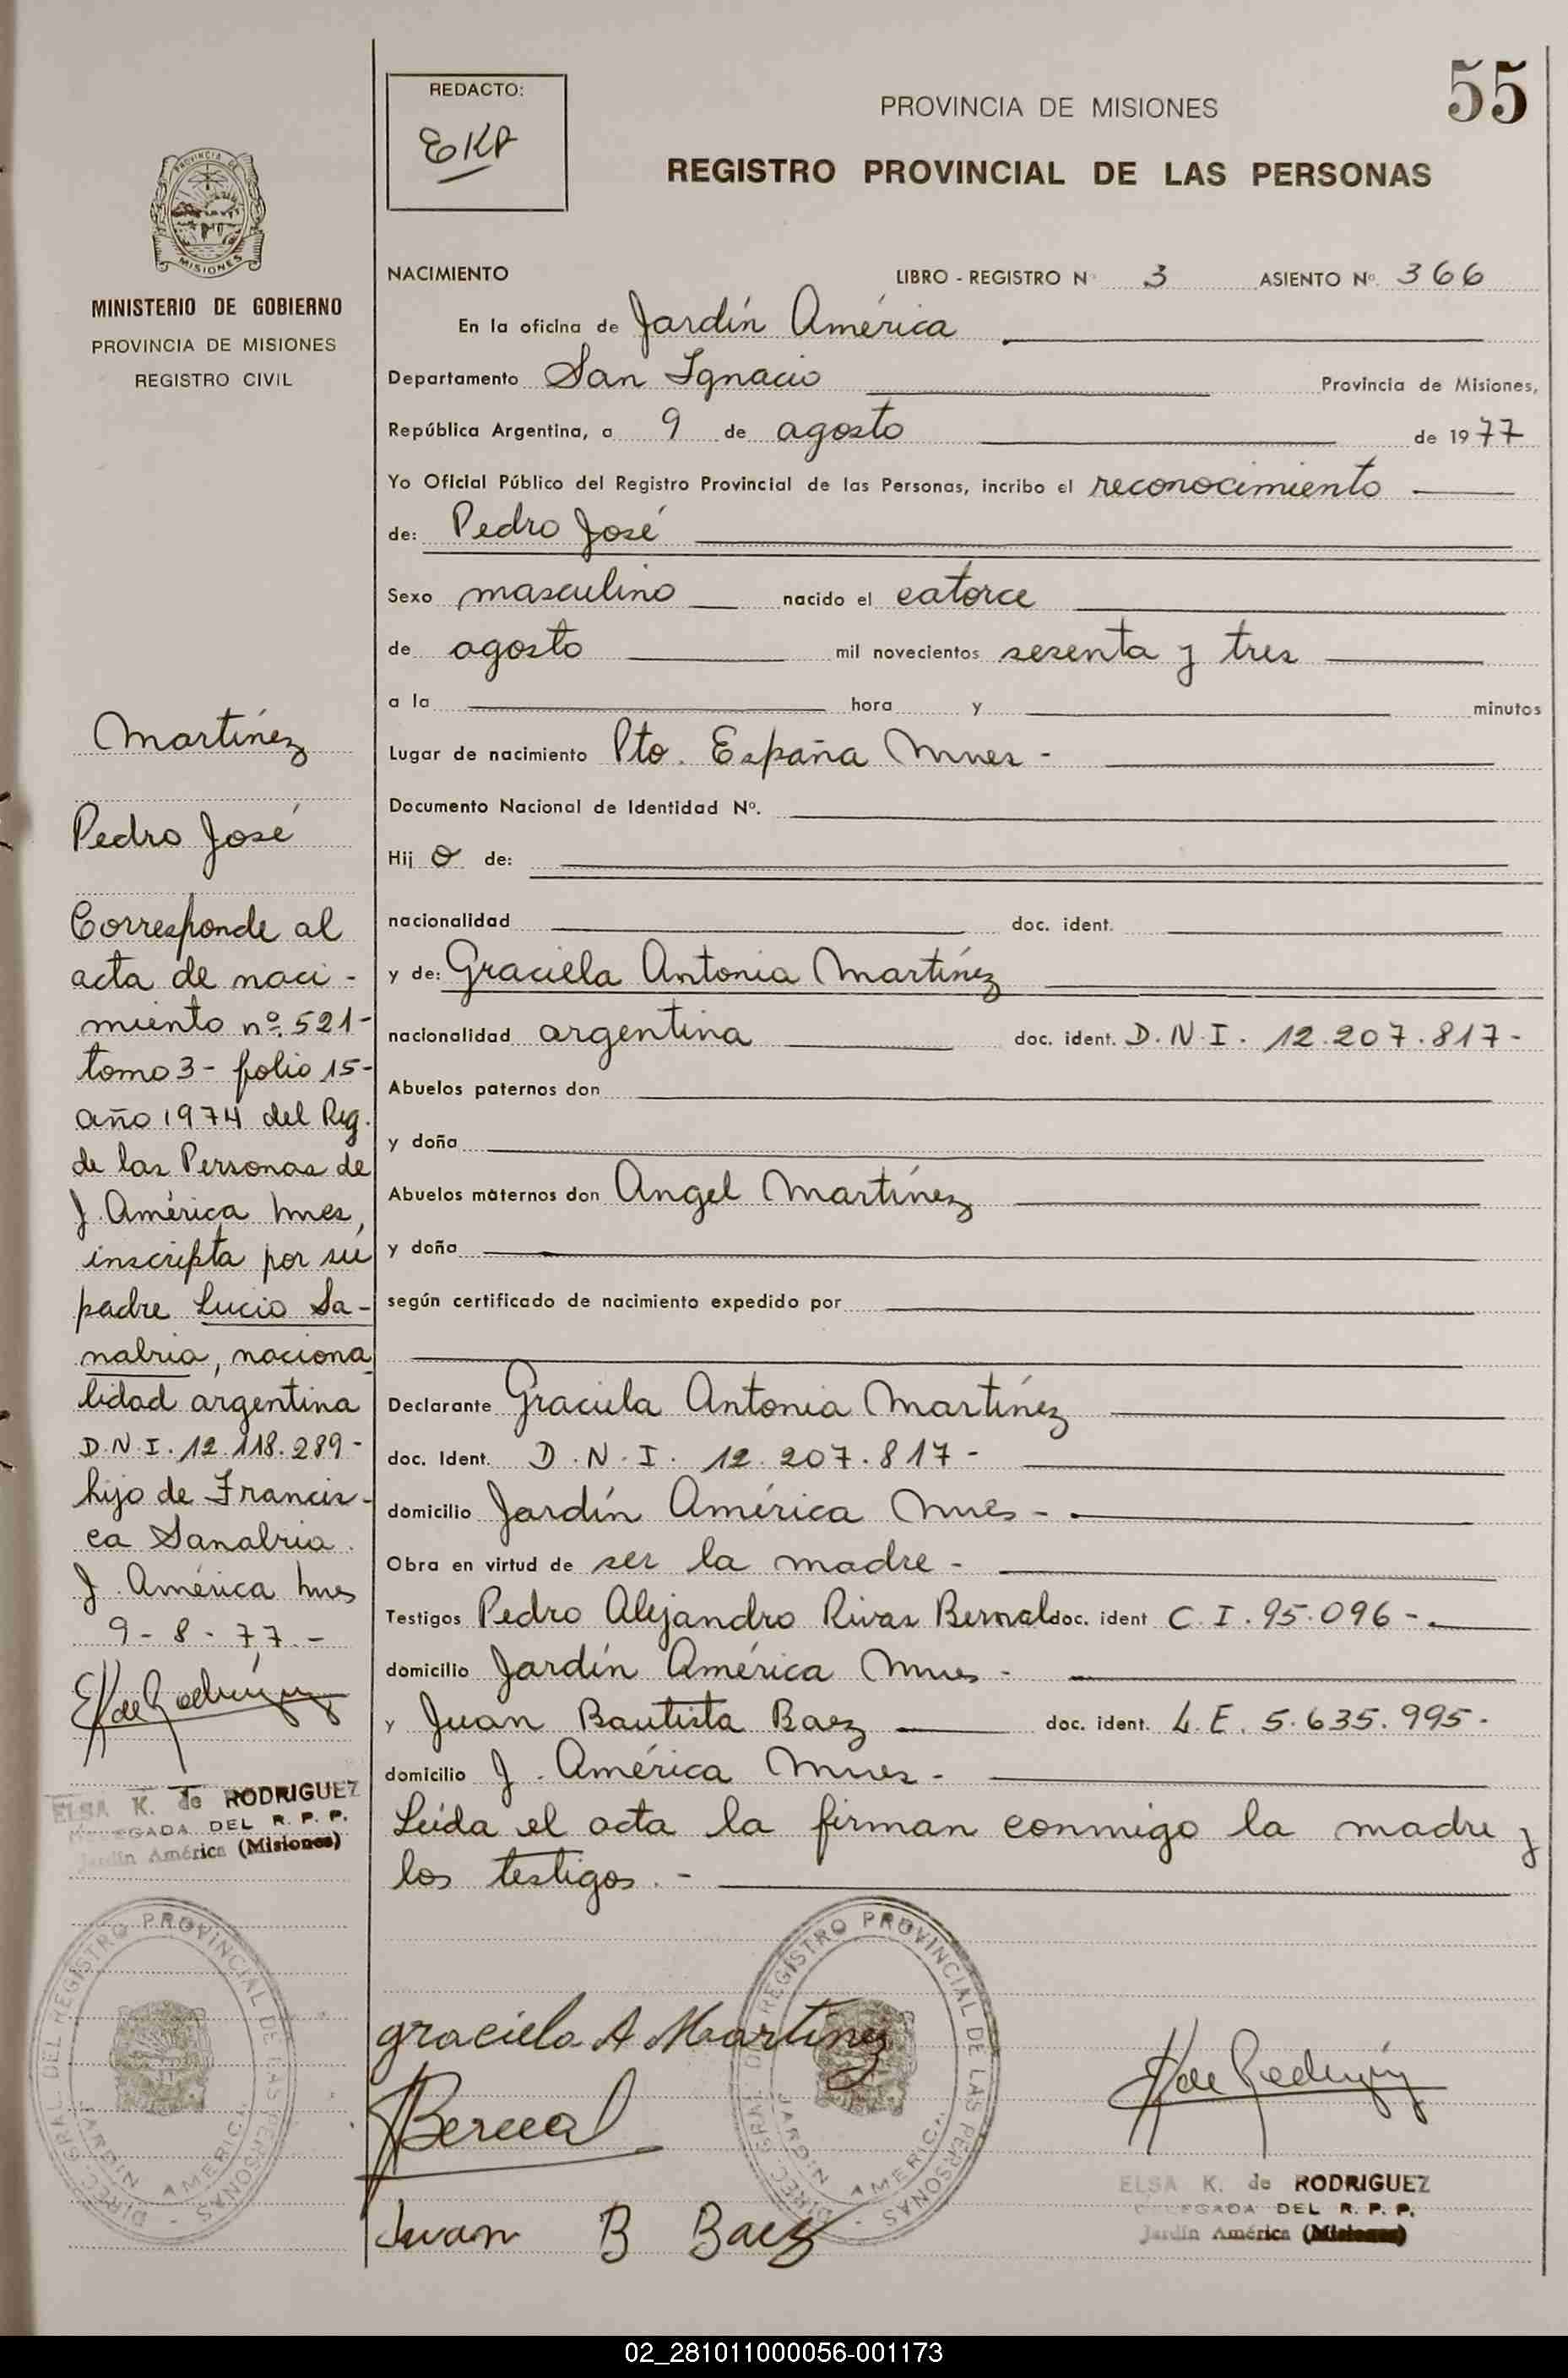 55
REDACTO:
EKR
PROVINCIA DE MISIONES
REGISTRO PROVINCIAL DE LAS PERSONAS
PROVINCIA DE
MISIONES
MINISTERIO DE GOBIERNO
PROVINCIA DE MISIONES
REGISTRO CIVIL
NACIMIENTO LIBRO - REGISTRO Nº 3 ASIENTO Nº. 366
En la oficina de Jardín América
Departamento San Ignacio Provincia de Misiones,
República Argentina, a 9 de agosto de 1977
Yo Oficial Público del Registro Provincial de las Personas, incribo el reconocimiento
de: Pedro José
Sexo masculino nacido el catorce
de agosto mil novecientos sesenta y tres
a la hora y minutos
Lugar de nacimiento Pto. España Mnes -
Documento Nacional de Identidad Nº.
Hij o de:
nacionalidad doc. ident.
y de: Graciela Antonia Martínez
nacionalidad argentina doc. ident. D.N.I. 12.207.817-
Abuelos paternos don
y doña
Abuelos maternos don Angel Martínez
y doña
según certificado de nacimiento expedido por
Declarante Graciela Antonia Martínez
doc. Ident. D.N.I. 12.207.817-
domicilio Jardín América Mnes -
Obra en virtud de ser la madre -
Testigos Pedro Alejandro Rivas Bernal doc. ident C.I. 95.096-
domicilio Jardín América Mnes -
y Juan Bautista Baez doc. ident. L.E. 5.635.995-
domicilio J. América Mnes -
Leída el acta la firman conmigo la madre y
los testigos. -
Martínez
Pedro José
Corresponde al
acta de naci-
miento nº 521-
tomo 3- folio 15-
año 1974 del Reg.
de las Personas de
J. América Mnes,
inscripta por su
padre Lucio Sa-
nabria, naciona
lidad argentina
D.N.I. 12.118.289-
hijo de Francis-
ca Sanabria.
J. América Mnes
9-8-77.-
EK de Rodríguez
ELSA K. de RODRIGUEZ
DELEGADA DEL R. P. P.
Jardín América (Misiones)
DIREC. GRAL. DEL REGISTRO PROVINCIAL DE LAS PERSONAS -
JARDIN AMERICA
graciela A Martinez
Bernal
Juan B Baez
DIREC. GRAL. DEL REGISTRO PROVINCIAL DE LAS PERSONAS -
JARDIN AMERICA
EK de Rodríguez
ELSA K. de RODRIGUEZ
DELEGADA DEL R. P. P.
Jardín América (Misiones)
02_281011000056-001173